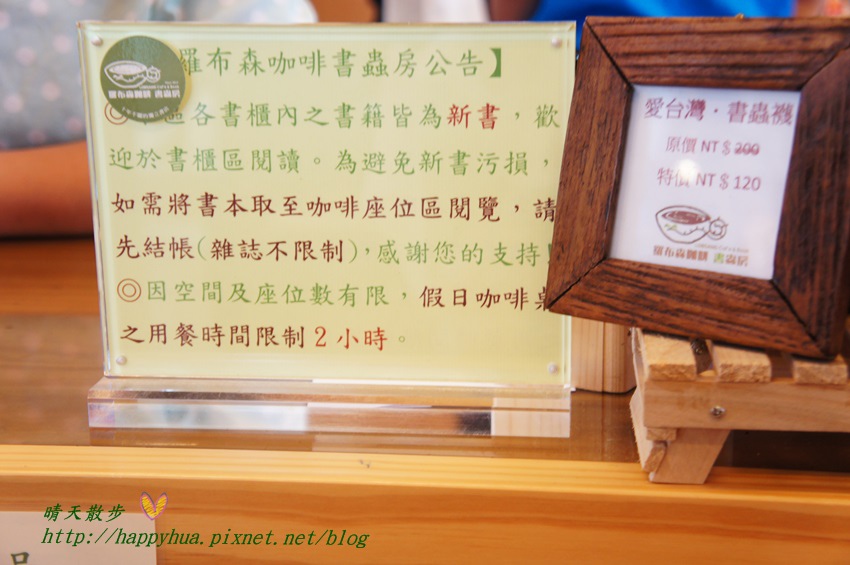 羅布森咖啡書蟲房公告】
羅布森咖啡 書蟲房
◎ 區各書櫃內之書籍皆為新書，歡
迎於書櫃區閱讀。為避免新書污損，
如需將書本取至咖啡座位區閱覽，請
先結帳(雜誌不限制)，感謝您的支持!
◎因空間及座位數有限，假日咖啡桌
之用餐時間限制2小時。
愛台灣．書蟲襪
原價 NT$200
特價 NT$120
羅布森咖啡 書蟲房
晴天散步
http://happyhua.pixnet.net/blog